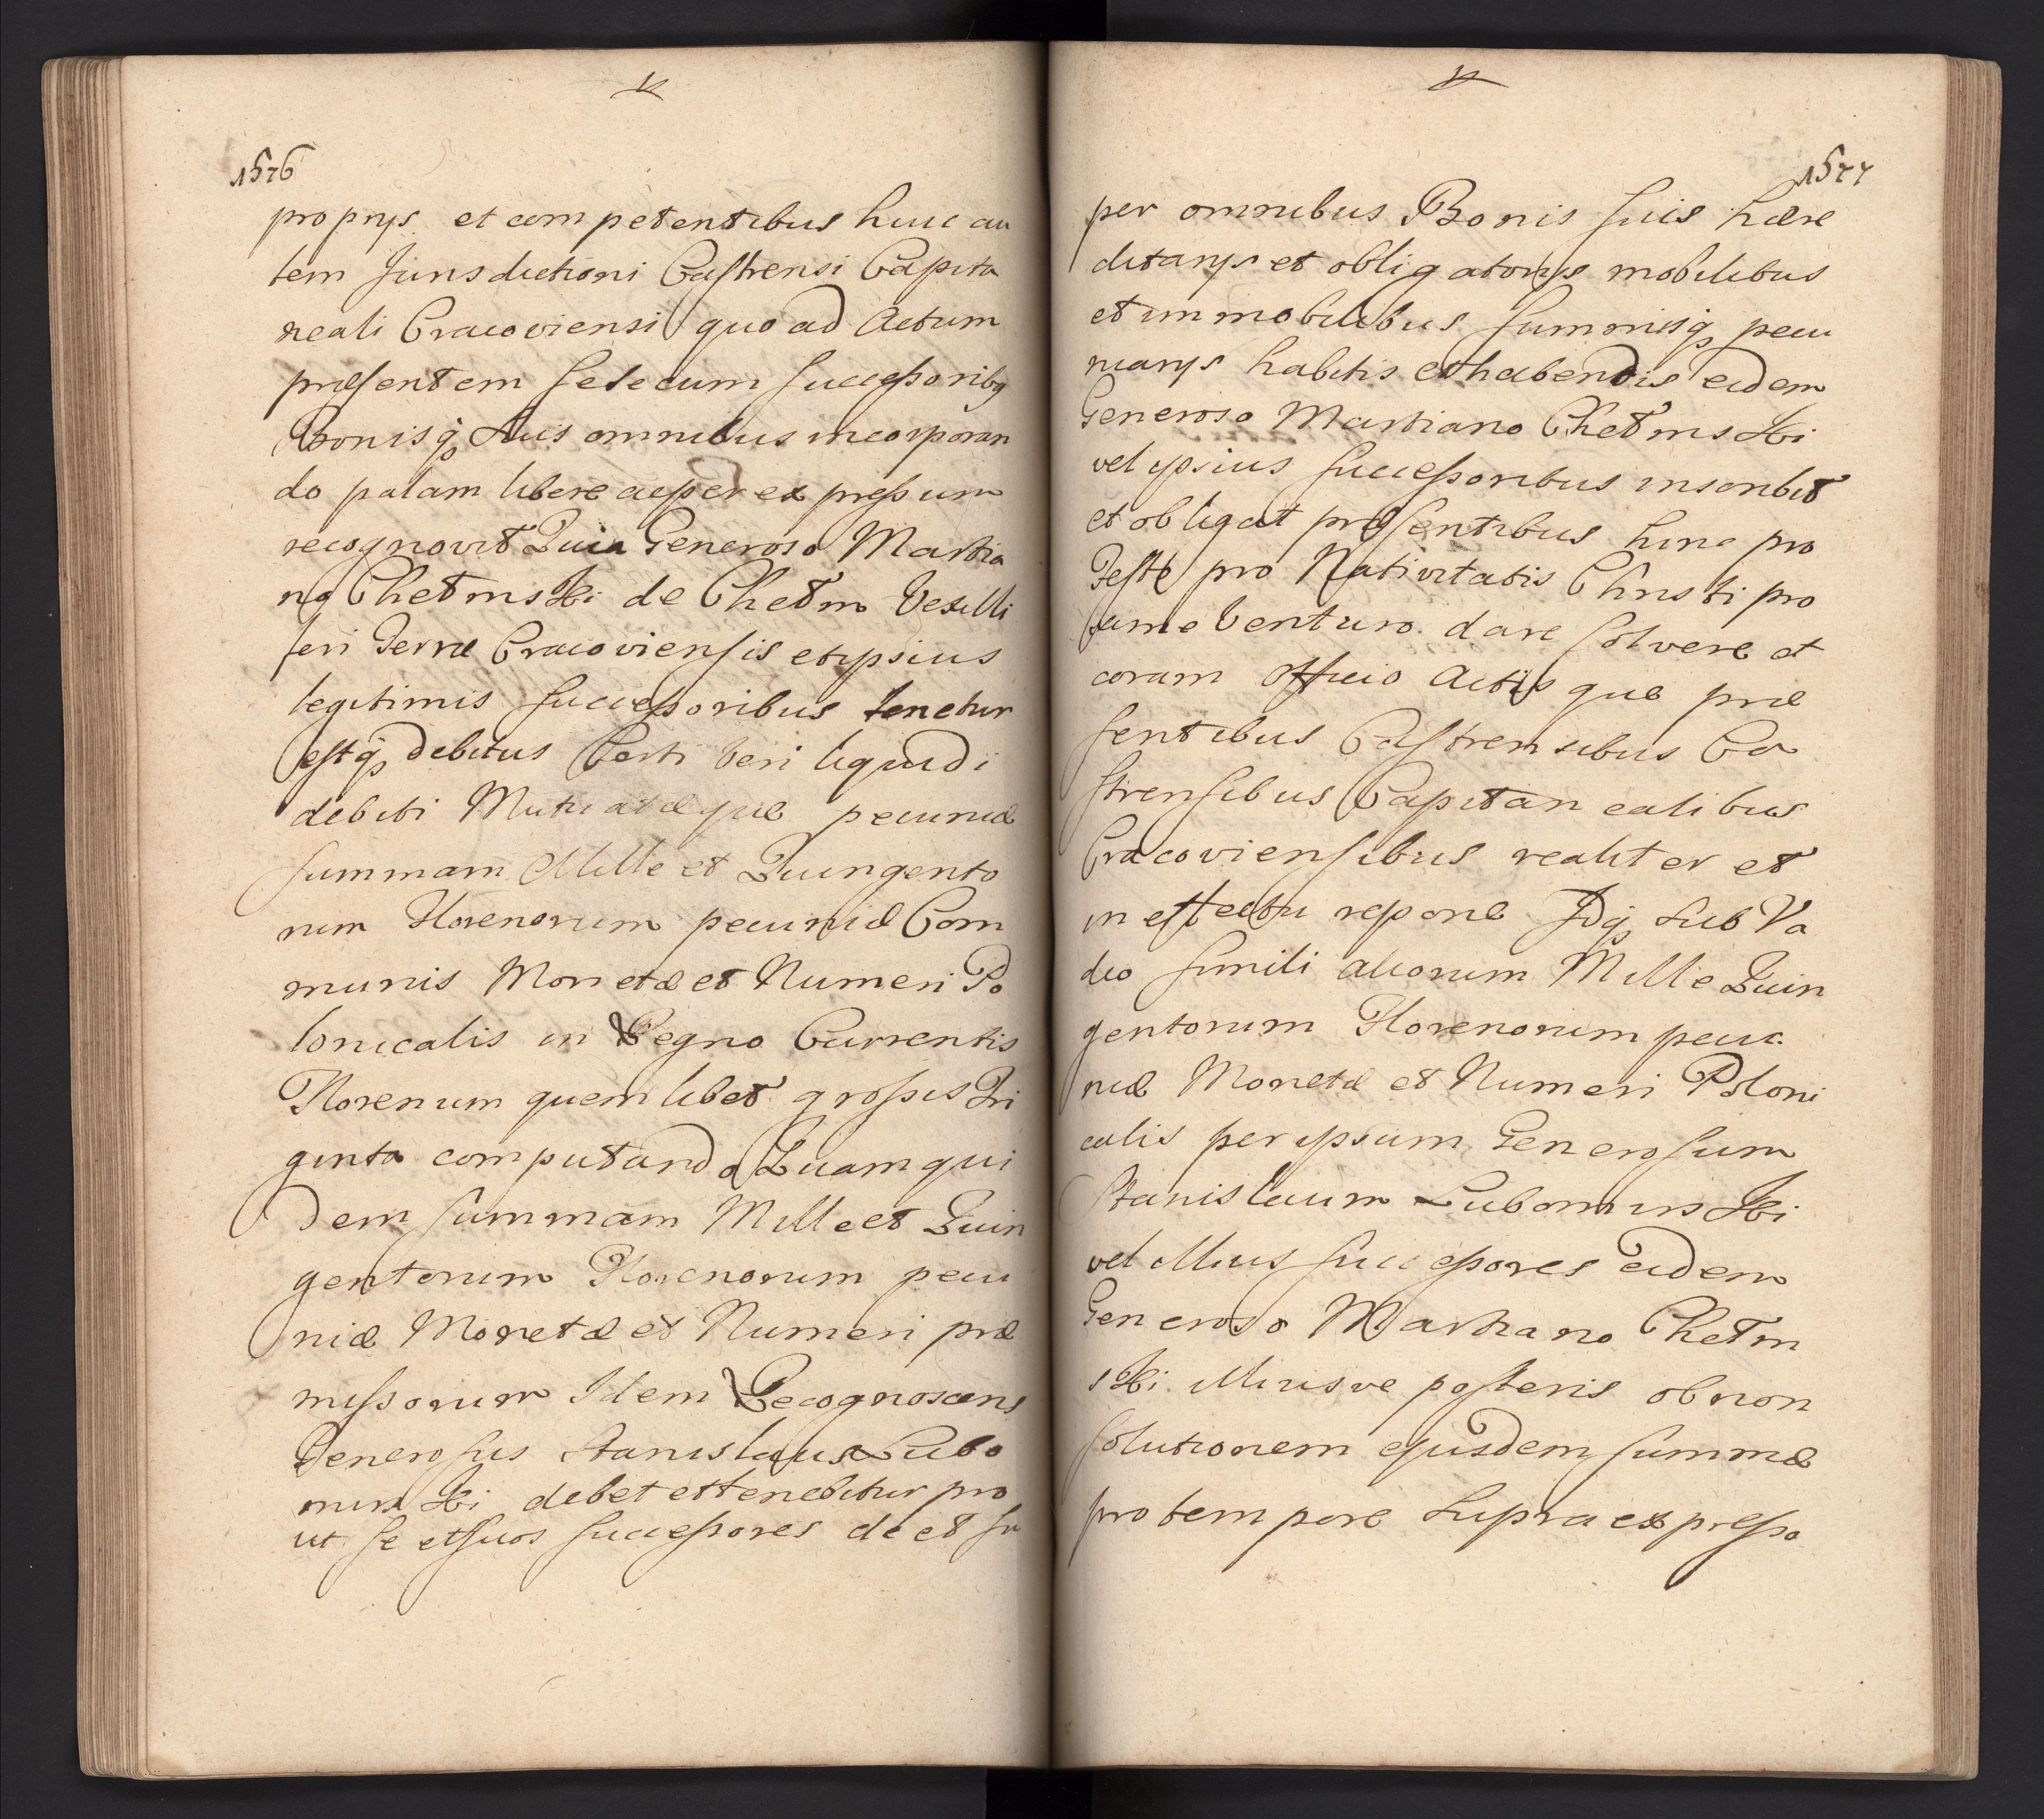 1576
proprys et competentibus huic au
tem Jurisdictioni Castrensi Capita
neali Cracoviensi quo ad Actum
præsentem sese cum successoribq
Bonisq suis omnibus incorporan
do palam libere ac per expressum
recognovit Quia Generoso Martia
no Chełmski de Chełm Vexilli
feri Terræ Cracoviensis et ipsius
legitimis successoribus tenetur
estq debitus Certi veri liquidi
debiti Mutuatæque pecuniæ
summam Mille et Quingento
rum Florenorum pecuniæ Com
munis Monetæ et Numeri Po
lonicalis in Regno Currentis
Florenum quemlibet grossis Tri
ginta computando Quam qui
dem summam Mille et Quin
gentorum Florenorum pecu
niæ Monetæ et Numeri præ
missorum Idem Recognoscens
Generosus Stanislaus Lubo
mirski debet et tenebitur pro
ut se et suos successores de et su
1577
per omnibus Bonis suis hære
ditarys et obligatorys mobilibus
et immobilibus summisq pecu
niarys habitis et habendis eidem
Generoso Martiano Chełmski
vel ipsius successoribus inscribit
et obligat præsentibus hinc pro
Feste pro Nativitatis Christi pro
xime Venturo dare solvere et
coram officio Actisque præ
sentibus Castrensibus Ca
strensibus Capitanealibus
Cracoviensibus realiter et
in effectu repone Idq sub Va
dio simili aliorum Mille Quin
gentorum Florenorum pecu
niæ Monetæ et Numeri Poloni
calis per ipsum Generosum
Stanislaum Lubomirski
vel illius successores eidem
Generoso Martiano Chełm
ski illiusve posteris ob non
solutionem ejusdem summæ
pro tempore supra expresso